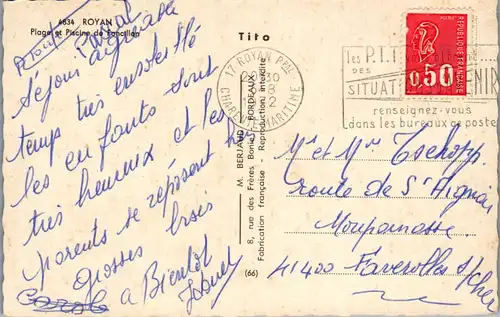 4634 ROYAN
Plage et Piscine de Foncillon
Tito
Séjour agréable
temps très ensoleillé
les enfants sont
très heureux et les
parents se reposent
grosses bises
a Bientôt
17 ROYAN PPAL
CHARENTE MARITIME
les P.T.T
DES
SITUAT
renseignez-vous
dans les bureaux de poste
0,50
REPUBLIQUE FRANÇAISE
M. BERJAUD
8, rue des Frères Bonie - BORDEAUX
Fabrication française - Reproduction interdite
(66)
M et Mme Tschopp
route de St Aignan
Moupamasse
41400 Faverolles s/Cher